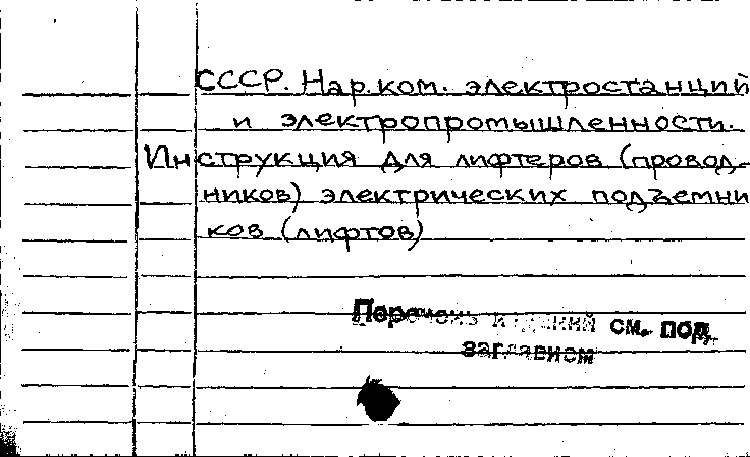 СССР. Нар.ком. электростанций
и электропромышленности.
Инструкция для лифтеров (провод-
ников) электрических подъемни
ков (лифтов)
Перечень изданий см. под
заглавием